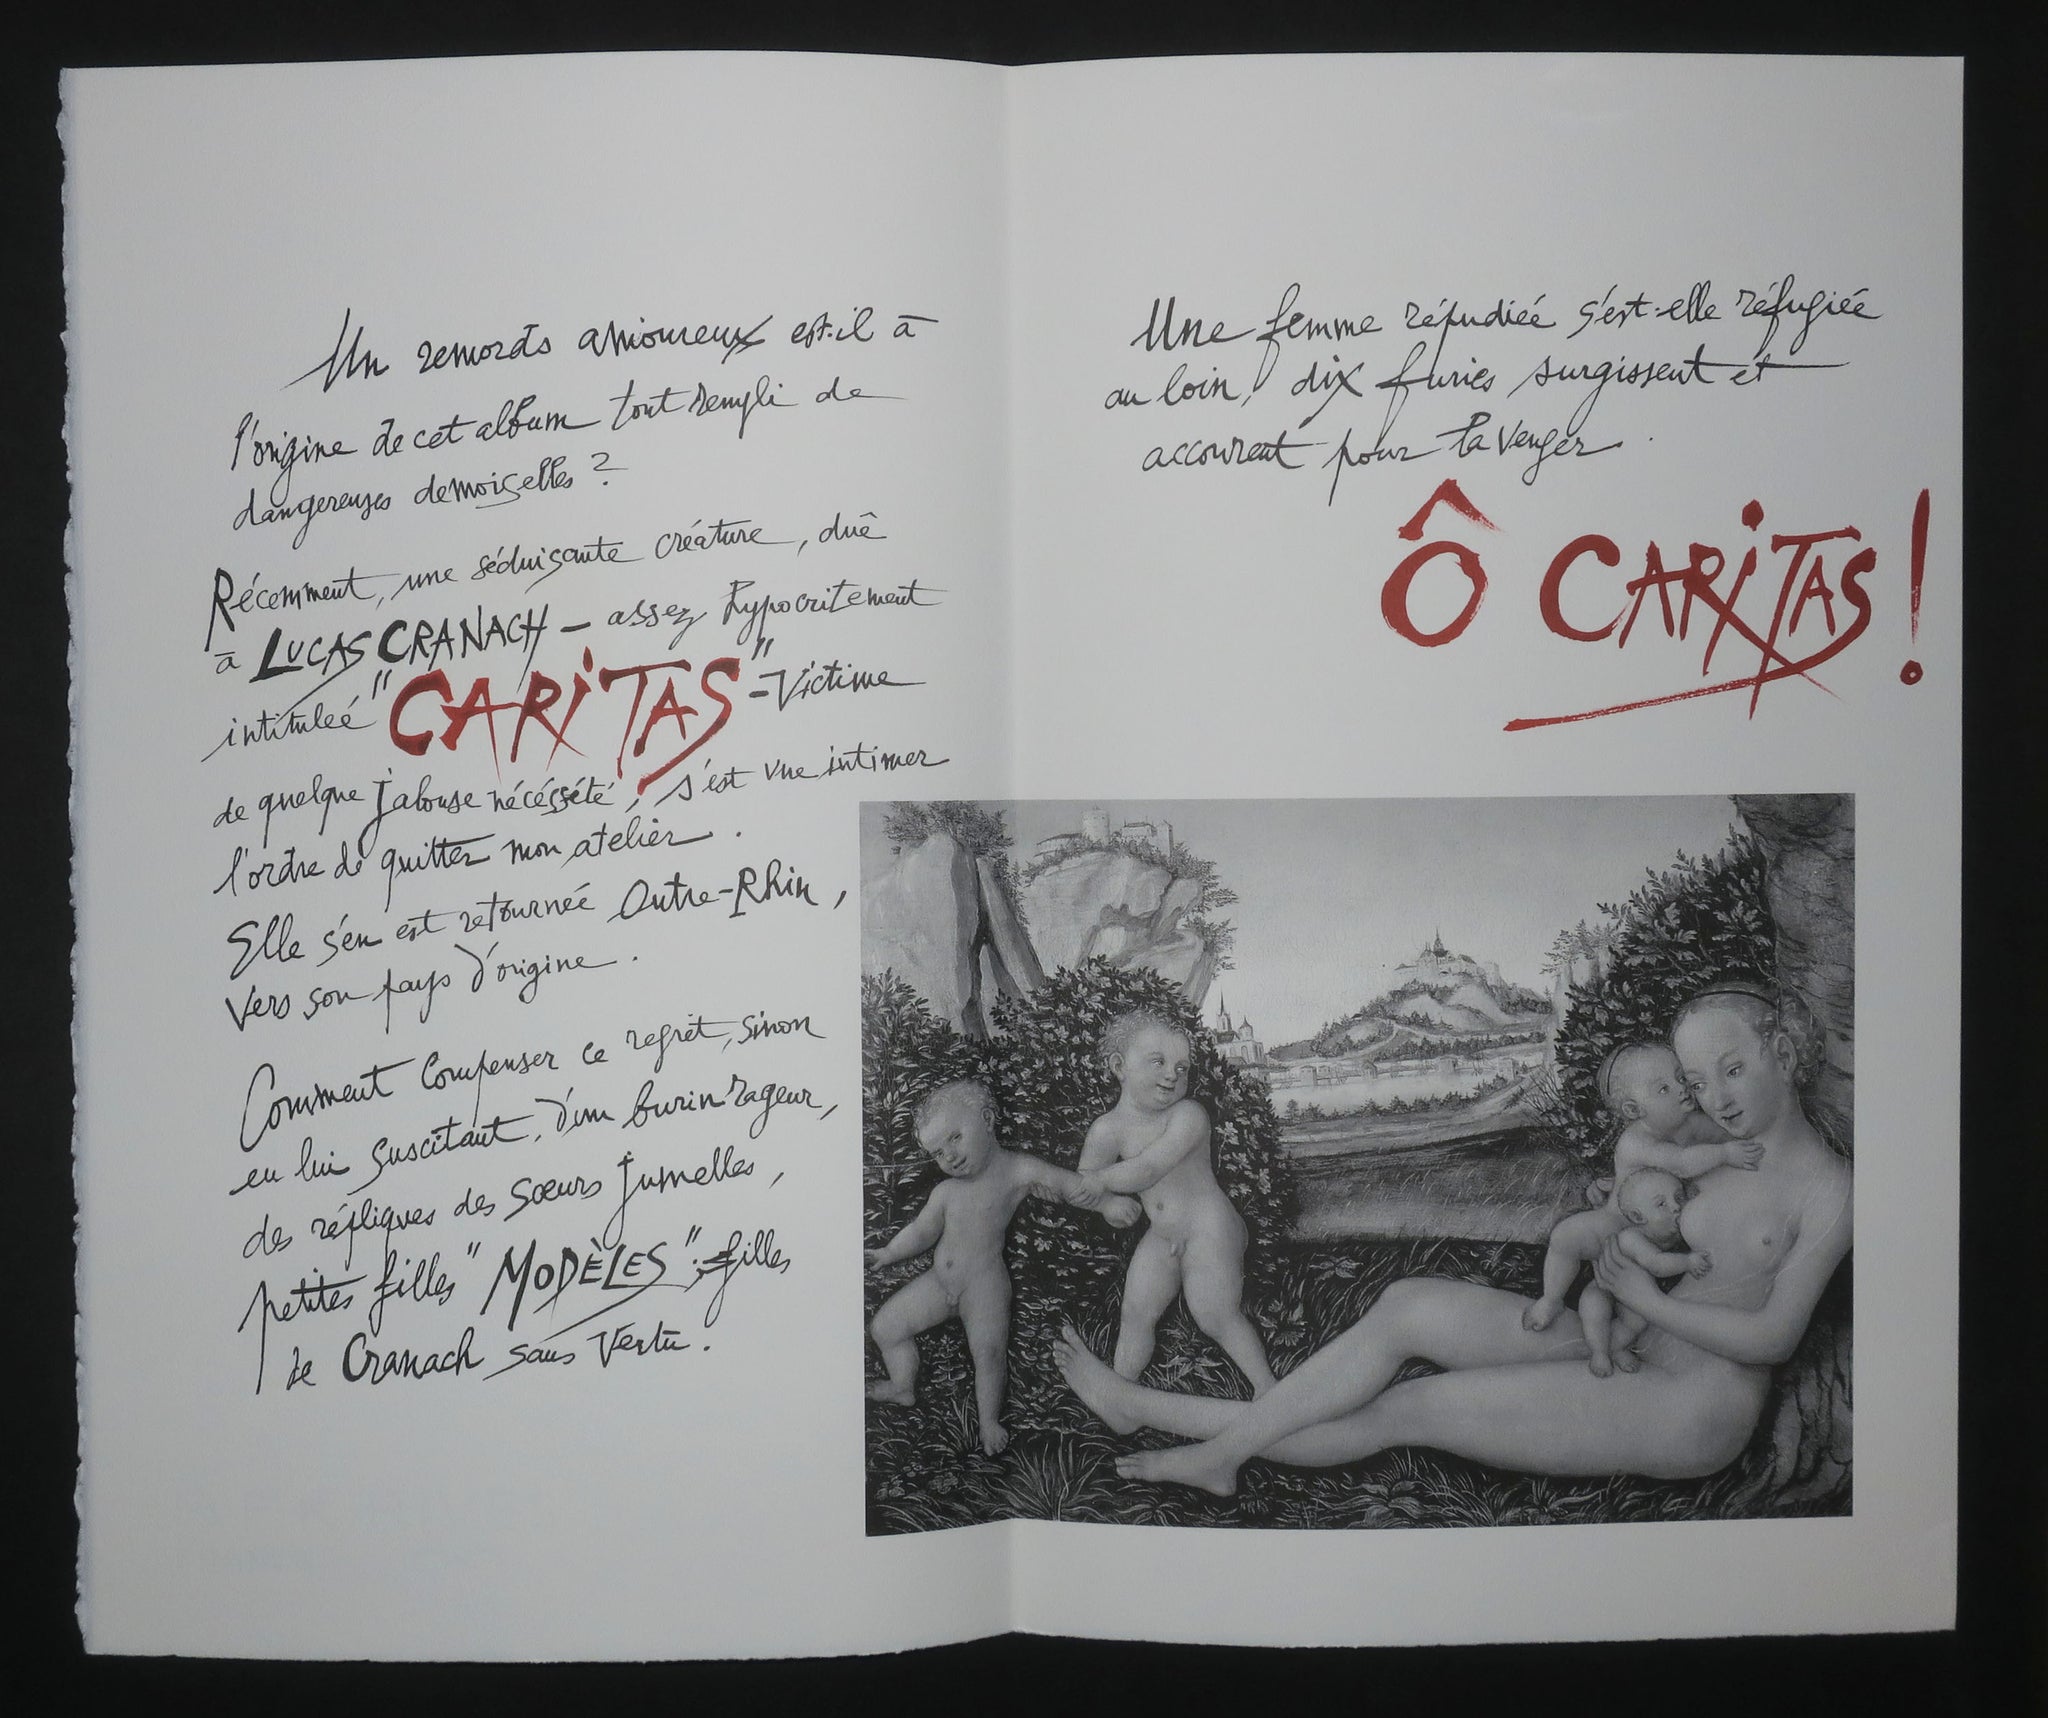 Un remords amoureux est-il à
l'origine de cet album tout rempli de
dangereuses demoiselles ?
Récemment, une séduisante créature, duê
à LUCAS CRANACH – assez hypocritement
intitulée "CARiTAS" – Victime
de quelque jalouse nécéssété, s'est vue intimer
l'ordre de quitter mon atelier.
Elle s'en est retournée Outre-Rhin,
Vers son pays d'origine.
Comment compenser ce regrèt, sinon
en lui suscitant, d'un burin rageur,
des répliques des sœurs jumelles,
petites filles "MODÈLES", filles
de Cranach sans Vertu.
Une femme répudiée s'est-elle réfugiée
au loin, dix furies surgissent et
accourent pour la Venger.
Ô CARiTAS !